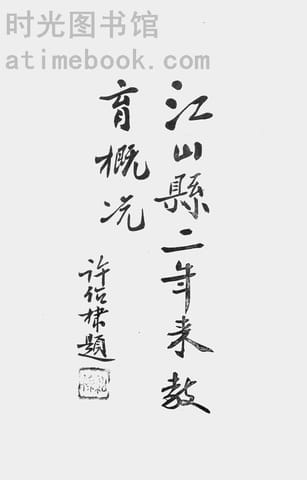 时光图书馆
atimebook.com
江山縣二年来教
育概况
许绍棣題